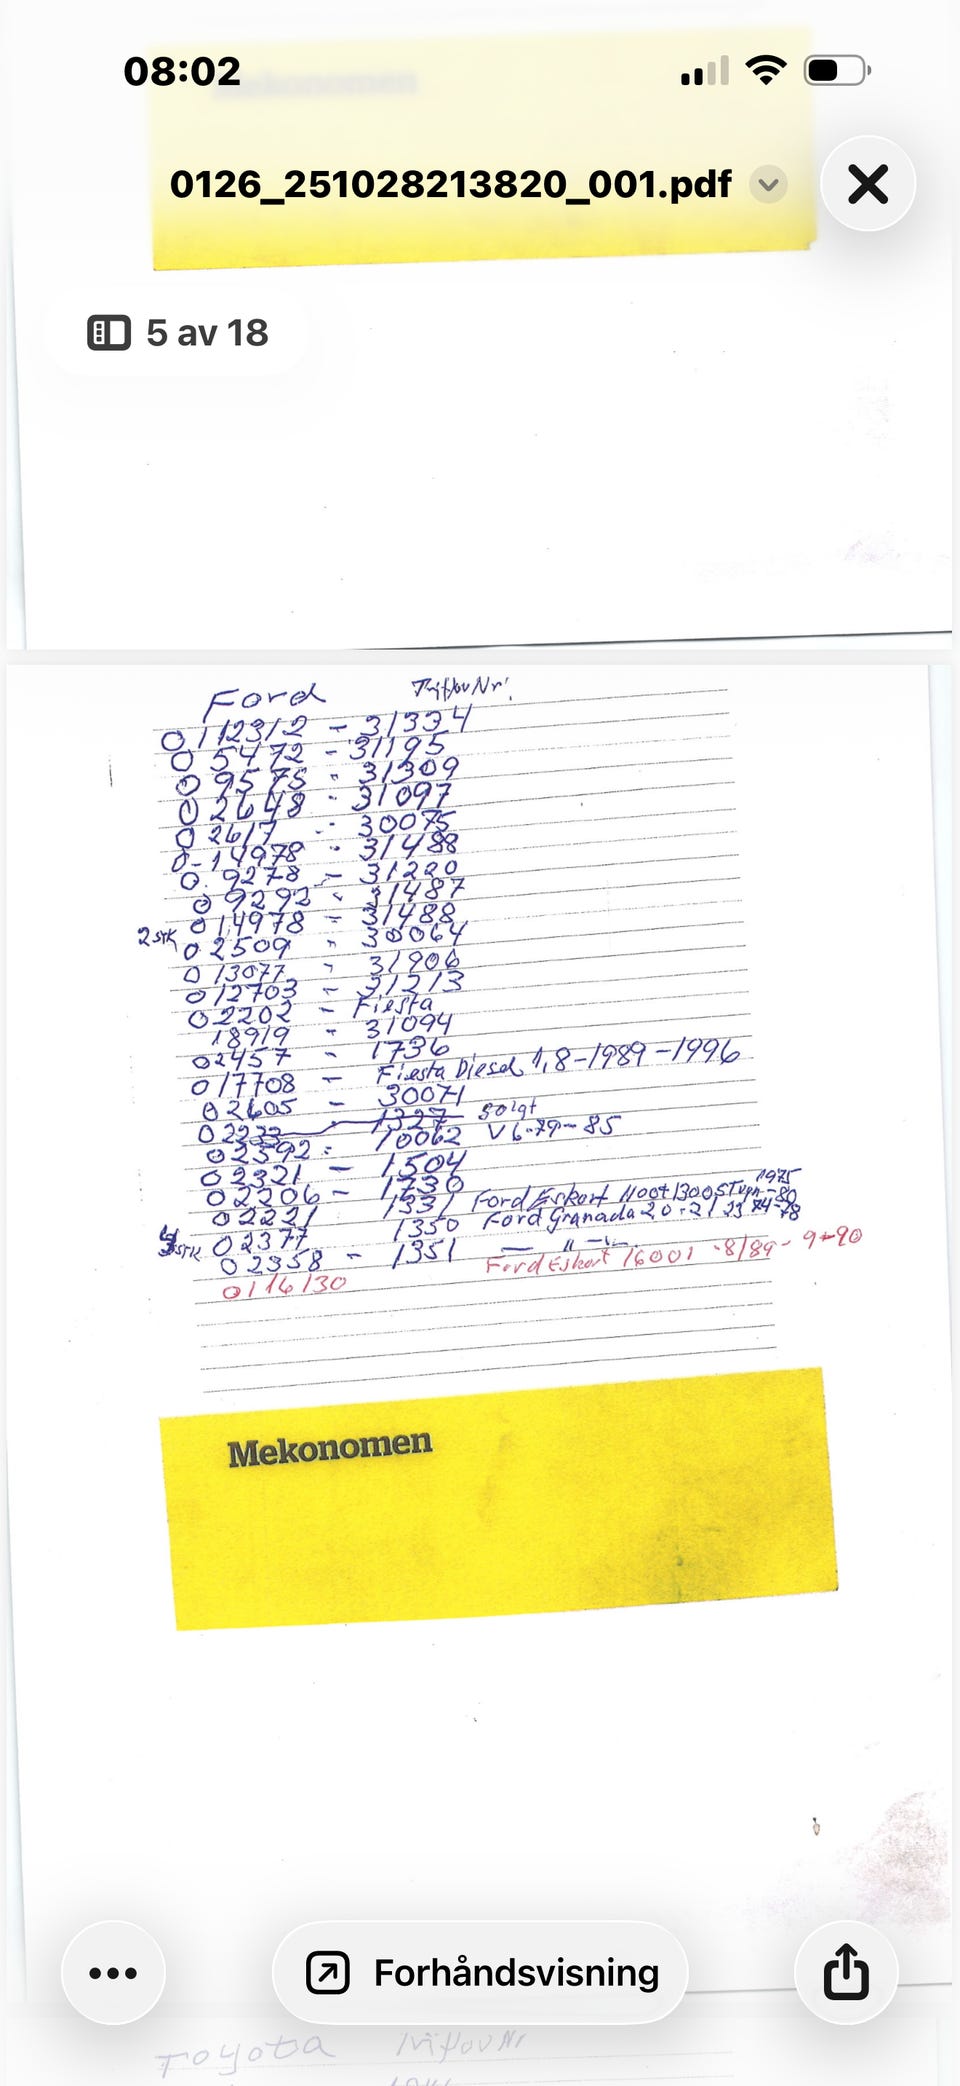 08:02
Mekonomen
0126_251028213820_001.pdf
5 av 18
Ford TriflovNr.
0112312 - 31334
0 5472 - 31195
0 9575 - 31309
0 2648 - 31097
0 2617 - 30075
0-14978 - 31488
0. 9278 - 31220
0 9292 - 31487
014978 - 31488
2stk 0 2509 - 30064
0 13077 - 31906
012703 - 31213
02202 - Fiesta
18919 - 31094
02457 - 1736
017708 - Fiesta Diesel 1,8-1989-1996
02605 - 30071
02233 1327 solgt
02392 - 10062 V6-79-85
02321 - 1504
02206 - 1730
02221 1331 Ford Eskort 1100t 1300S 1975-80
stk 02377 1350 Ford Granada 20-21 23 74-78
02358 - 1351 — 〃 —
0116130 Ford Eskort 1600i -8/89-9-90
Mekonomen
Forhåndsvisning
Toyota TriflovNr